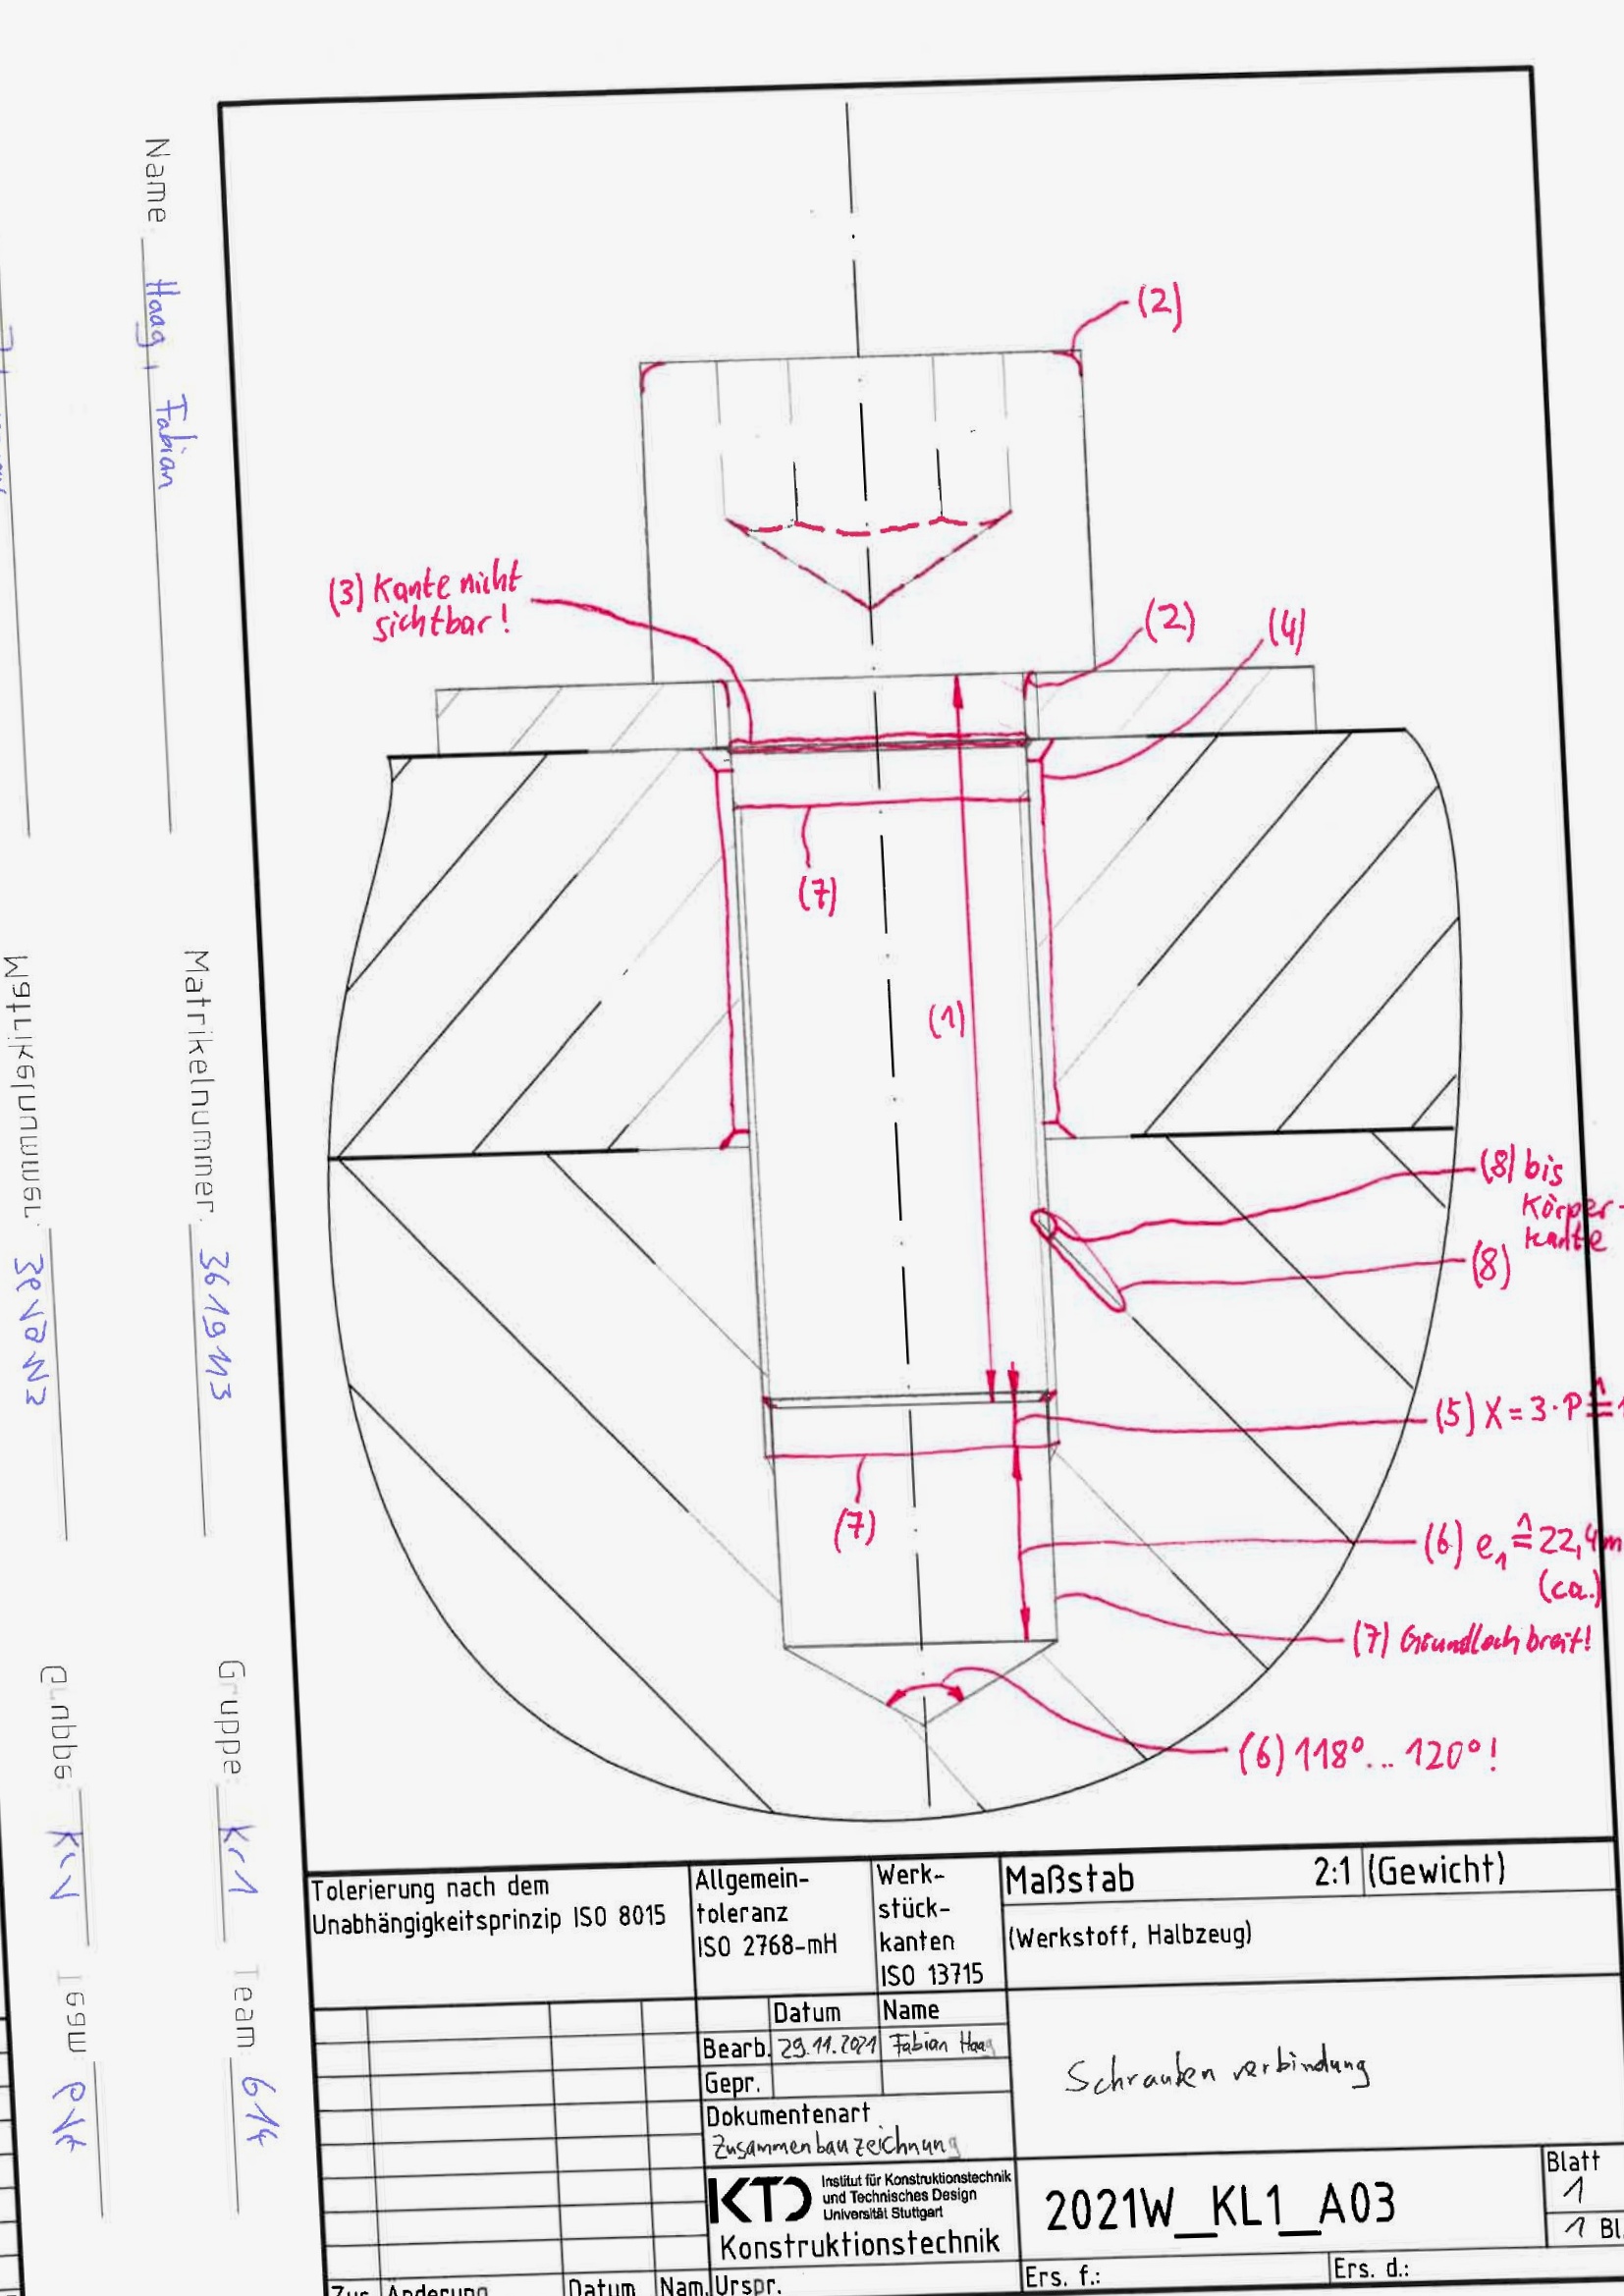 Name:
Haag, Fabian
Matrikelnummer:
3619113
Gruppe:
Kr1
Team:
614
Matrikelnummer:
Gruppe:
Team
(2)
(3) Kante nicht
sichtbar!
(2)
(4)
(7)
(1)
(8) bis
Körper-
kante
(8)
(5) X = 3 · P ≙
(7)
(6) e₁ ≙ 22,4 m
(ca.)
(7) Grundloch breit!
(6) 118° ... 120°!
Tolerierung nach dem
Unabhängigkeitsprinzip ISO 8015
Allgemein-
toleranz
ISO 2768-mH
Werk-
stück-
kanten
ISO 13715
Maßstab 2:1 (Gewicht)
(Werkstoff, Halbzeug)
Datum Name
Bearb. 29.11.2021 Fabian Haag
Gepr.
Dokumentenart
Zusammenbauzeichnung
Schraubenverbindung
KTD Institut für Konstruktionstechnik
und Technisches Design
Universität Stuttgart
Konstruktionstechnik
2021W_KL1_A03
Blatt
1
1 Bl.
Zus. Änderung Datum Nam. Urspr. Ers. f.: Ers. d.: